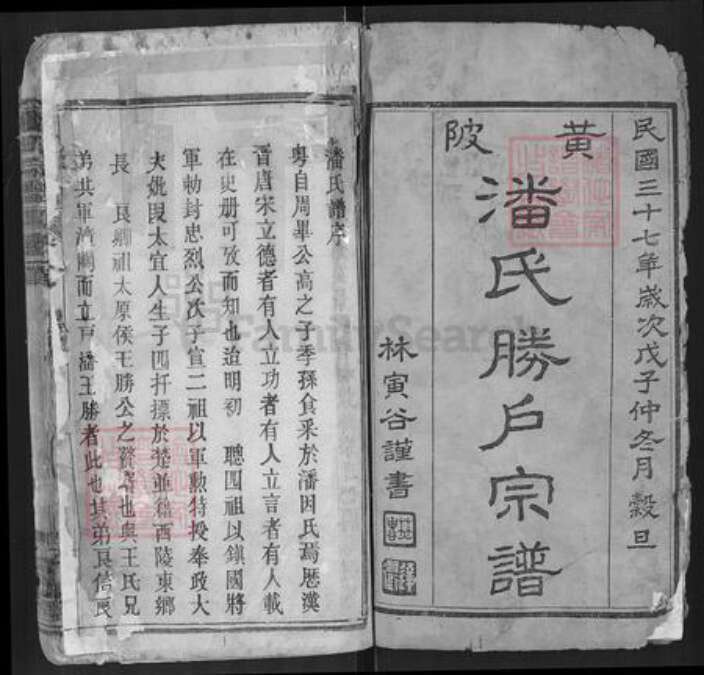 民國三十七年歲次戊子仲冬月 穀旦
黃陂
潘氏勝戶宗譜
林寅谷謹書
潘氏譜序
粵自周畢公高之子季孫食采於潘因氏焉歷漢
晋唐宋立德者有人立功者有人立言者有人載
在史册可攷而知也迨明初 聰四祖以鎮國將
軍勅封忠烈公次子宣二祖以軍勲特授奉政大
夫妣段太宜人生子四扦摽於楚並籍西陵東鄉
長 良卿祖太原侯王勝公之贅壻也與王氏兄
弟共軍濟 而立戶潘王勝者此也其弟良信良
FamilySearch